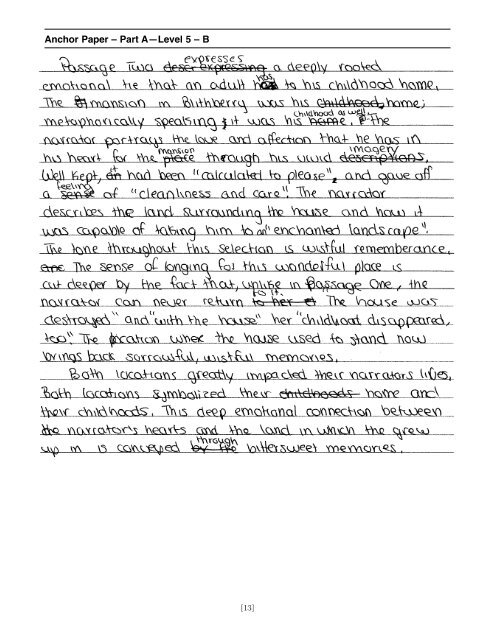 Anchor Paper – Part A—Level 5 – B
expresses
Passage Two descr expressing a deeply rooted
has
emotional tie that an adult has to his childhood home.
The mansion in Blithberry was his childhood, home;
childhood as well
metaphorically speaking, it was his home. The
narrator portrays the love and affection that he has in
mansion imagery
his heart for the place through his vivid descriptions.
it
Well kept, had been "calculated to please", and gave off
feeling
a sense of "cleanliness and care". The narrator
describes the land surrounding the house and how it
was capable of taking him to an "enchanted landscape".
The tone throughout this selection is wistful rememberance,
and The sense of longing for this wonderful place is
cut deeper by the fact that, unlike in Passage One, the
to it.
narrator can never return to her The house was
destroyed" and "with the house" her "childhood disappeared,
too". The location where the house used to stand now
brings back sorrowful, wistful memories.
Both locations greatly impacted their narrators lives.
Both locations symbolized their childhoods home and
their childhoods. This deep emotional connection between
the narrator's hearts and the land in which the grew
through
up in is conveyed by the bittersweet memories.
[13]